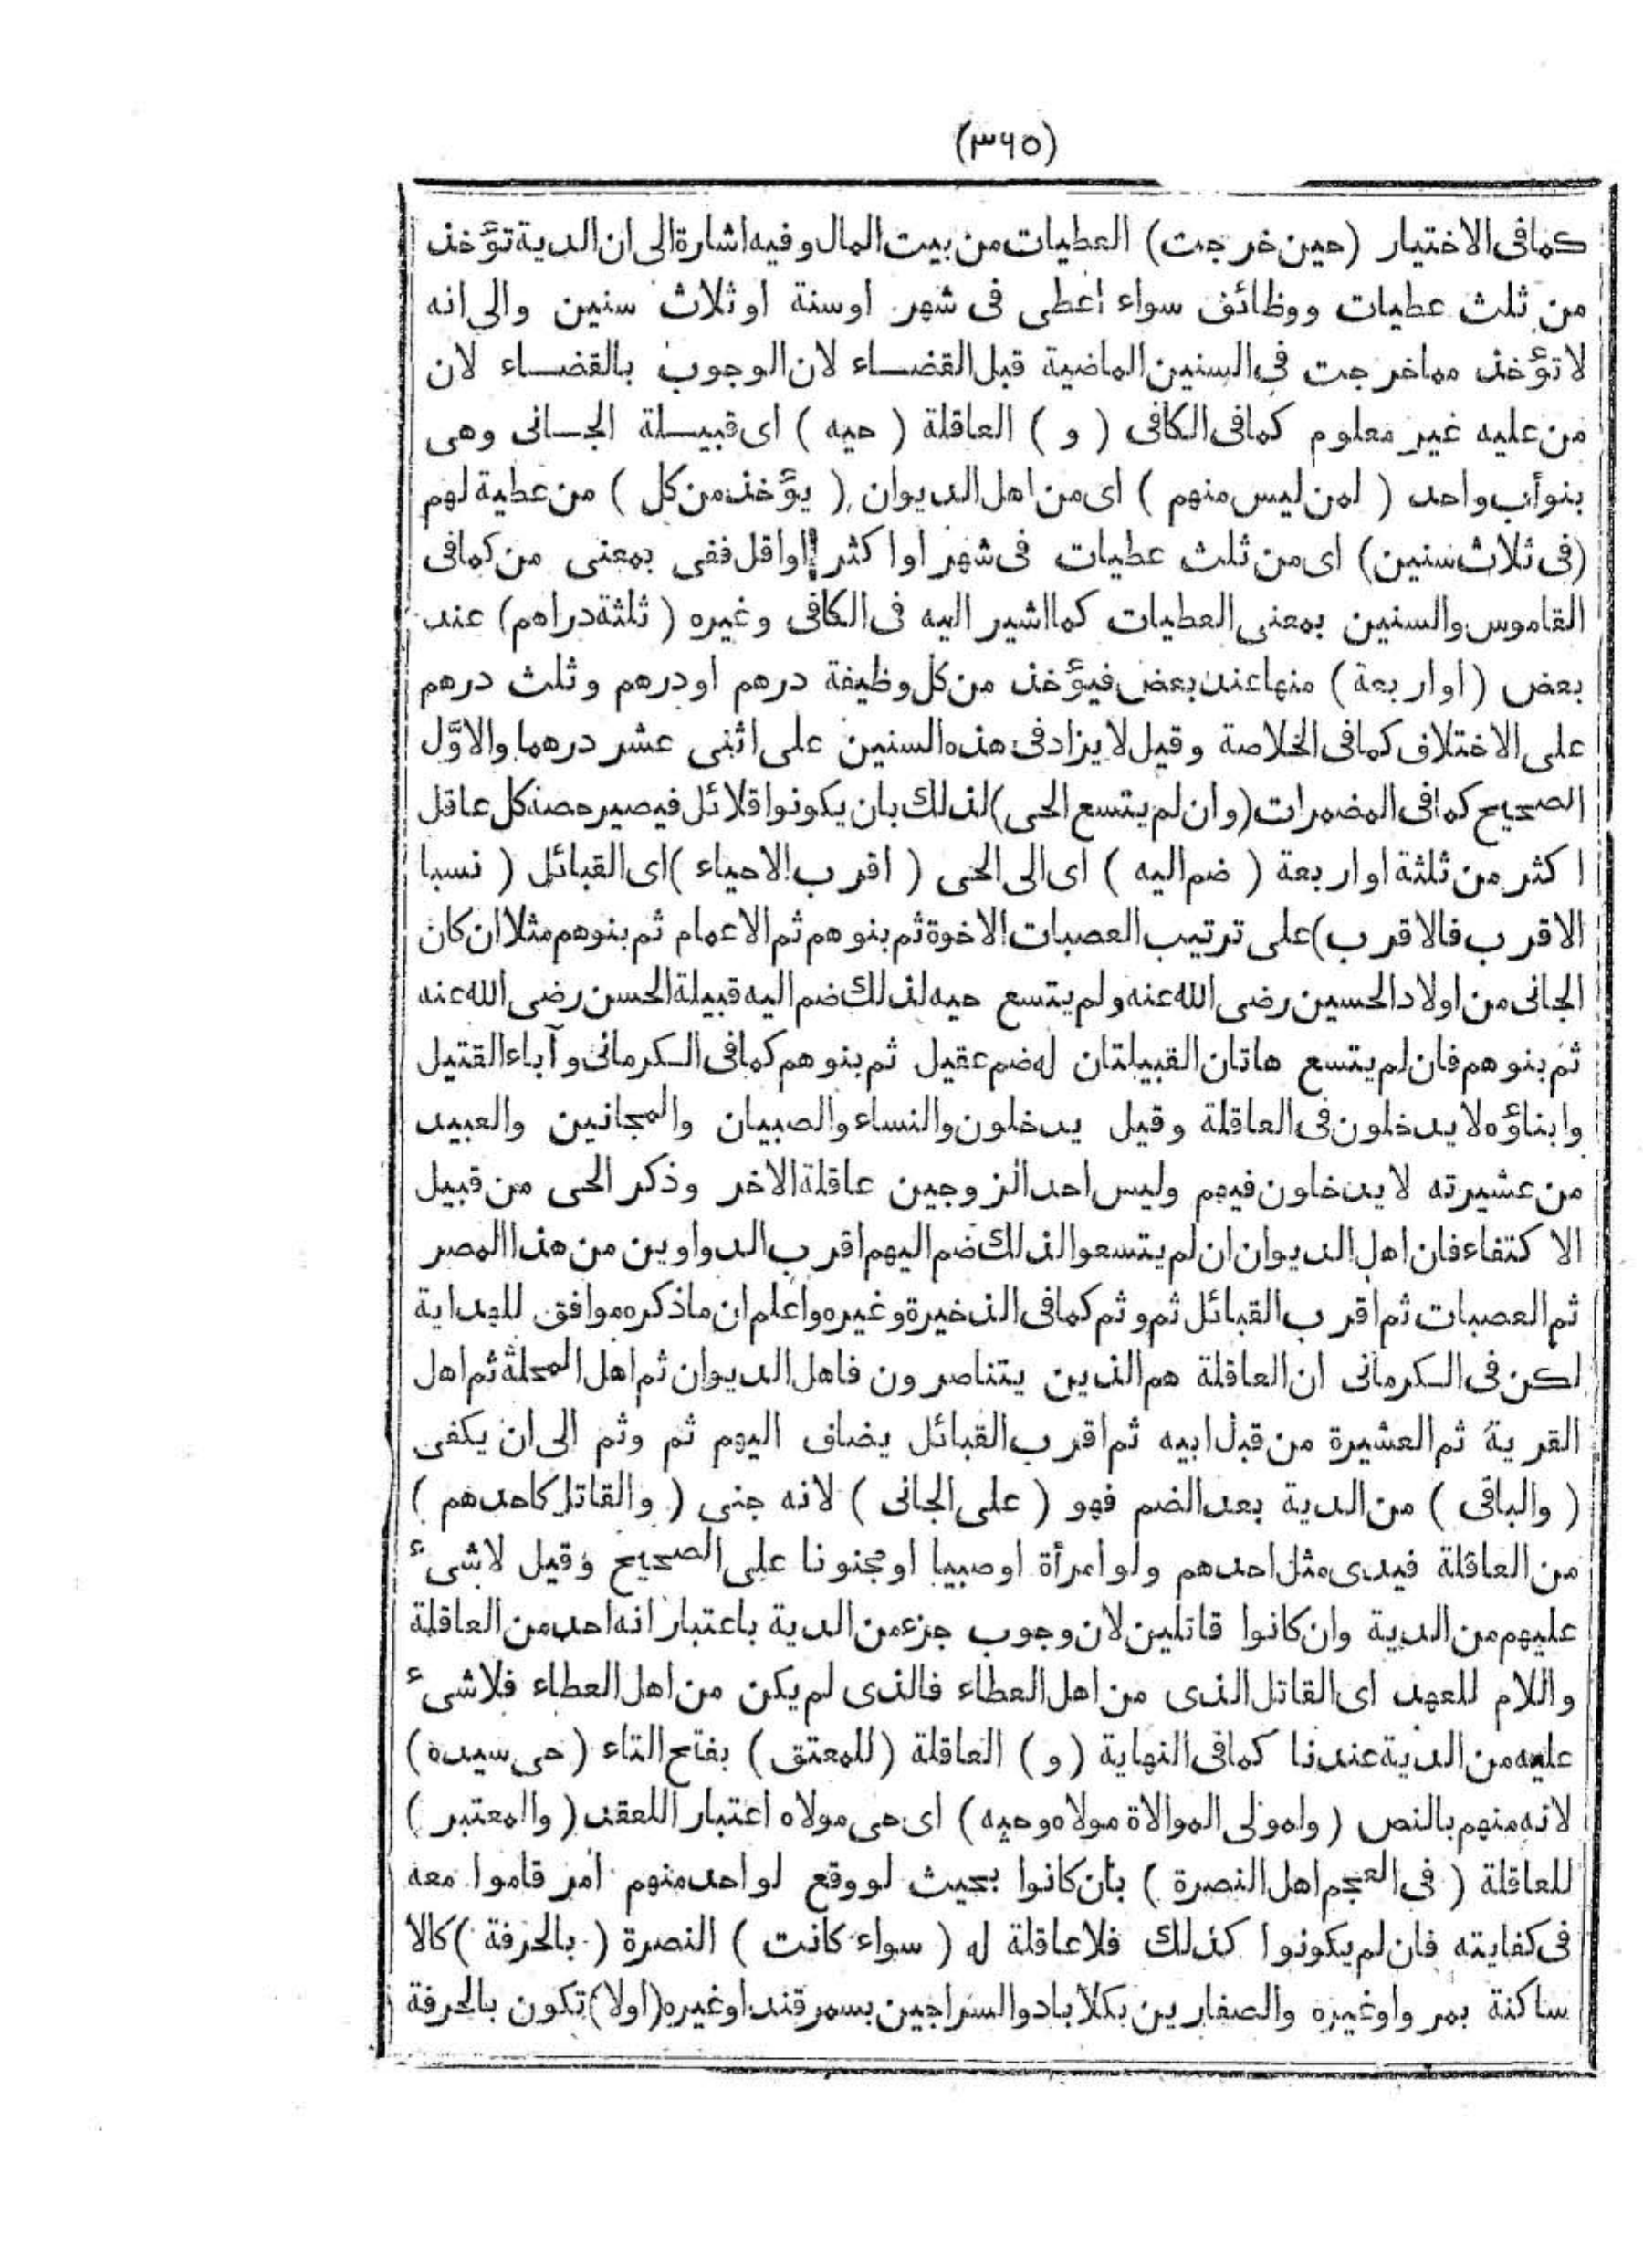 (٣٦٥)
كما فى الاختيار (حين خرجت) العطيات من بيت المال وفيه اشارة الى ان الدية تؤخذ
من ثلث عطيات ووظائف سواء اعطى فى شهر اوسنة اوثلاث سنين والى انه
لا تؤخذ مما خرجت فى السنين الماضية قبل القضاء لان الوجوب بالقضاء لان
من عليه غير معلوم كما فى الكافى ( و ) العاقلة ( حيه ) اى قبيلة الجانى وهى
بنو أب واحد ( لمن ليس منهم ) اى من اهل الديوان ( يؤخذ من كل ) من عطية لهم
(فى ثلاث سنين) اى من ثلث عطيات فى شهر او اكثر او اقل ففى بمعنى من كما فى
القاموس والسنين بمعنى العطيات كما اشير اليه فى الكافى وغيره ( ثلثة دراهم) عند
بعض ( او اربعة ) منها عند بعض فيؤخذ من كل وظيفة درهم اودرهم وثلث درهم
على الاختلاف كما فى الخلاصة وقيل لا يزاد فى هذه السنين على اثنى عشر درهما والاوّل
الصحيح كما فى المضمرات (وان لم يتسع الحى) لذلك بان يكونوا قلائل فيصير حصة كل عاقل
اكثر من ثلثة او اربعة ( ضم اليه ) اى الى الحى ( اقرب الاحياء )اى القبائل ( نسبا
الاقرب فالاقرب) على ترتيب العصبات الاخوة ثم بنوهم ثم الاعمام ثم بنوهم مثلا ان كان
الجانى من اولاد الحسين رضى الله عنه ولم يتسع حيه لذلك ضم اليه قبيلة الحسن رضى الله عنه
ثم بنوهم فان لم يتسع هاتان القبيلتان له ضم عقيل ثم بنوهم كما فى الكرمانى وآباء القتيل
وابناؤه لا يدخلون فى العاقلة وقيل يدخلون والنساء والصبيان والمجانين والعبيد
من عشيرته لا يدخلون فيهم وليس احد الزوجين عاقلة الاخر وذكر الحى من قبيل
الاكتفاء فان اهل الديوان ان لم يتسعوا لذلك ضم اليهم اقرب الدواوين من هذا المصر
ثم العصبات ثم اقرب القبائل ثم وثم كما فى الذخيرة وغيره واعلم ان ما ذكره موافق للهداية
لكن فى الكرمانى ان العاقلة هم الذين يتناصرون فاهل الديوان ثم اهل المحلة ثم اهل
القرية ثم العشيرة من قبل ابيه ثم اقرب القبائل يضاف اليهم ثم وثم الى ان يكفى
( والباقى ) من الدية بعد الضم فهو ( على الجانى ) لانه جنى ( والقاتل كاحدهم )
من العاقلة فيدى مثل احدهم ولو امرأة اوصبيا اومجنونا على الصحيح وقيل لاشىء
عليهم من الدية وان كانوا قاتلين لان وجوب جزء من الدية باعتبار انه احد من العاقلة
واللام للعهد اى القاتل الذى من اهل العطاء فالذى لم يكن من اهل العطاء فلاشىء
عليه من الدية عندنا كما فى النهاية ( و ) العاقلة ( للمعتق ) بفتح التاء ( حى سيده )
لانه منهم بالنص ( ولمولى الموالاة مولاه وحيه ) اى حى مولاه اعتبارا للعقد ( والمعتبر )
للعاقلة ( فى العجم اهل النصرة ) بان كانوا بحيث لو وقع لواحد منهم امر قاموا معه
فى كفايته فان لم يكونوا كذلك فلا عاقلة له ( سواء كانت ) النصرة ( بالحرفة ) كالا
ساكنة بمرو اوغيره والصفارين بكلاباد والسراجين بسمرقند اوغيره (اولا) تكون بالحرفة